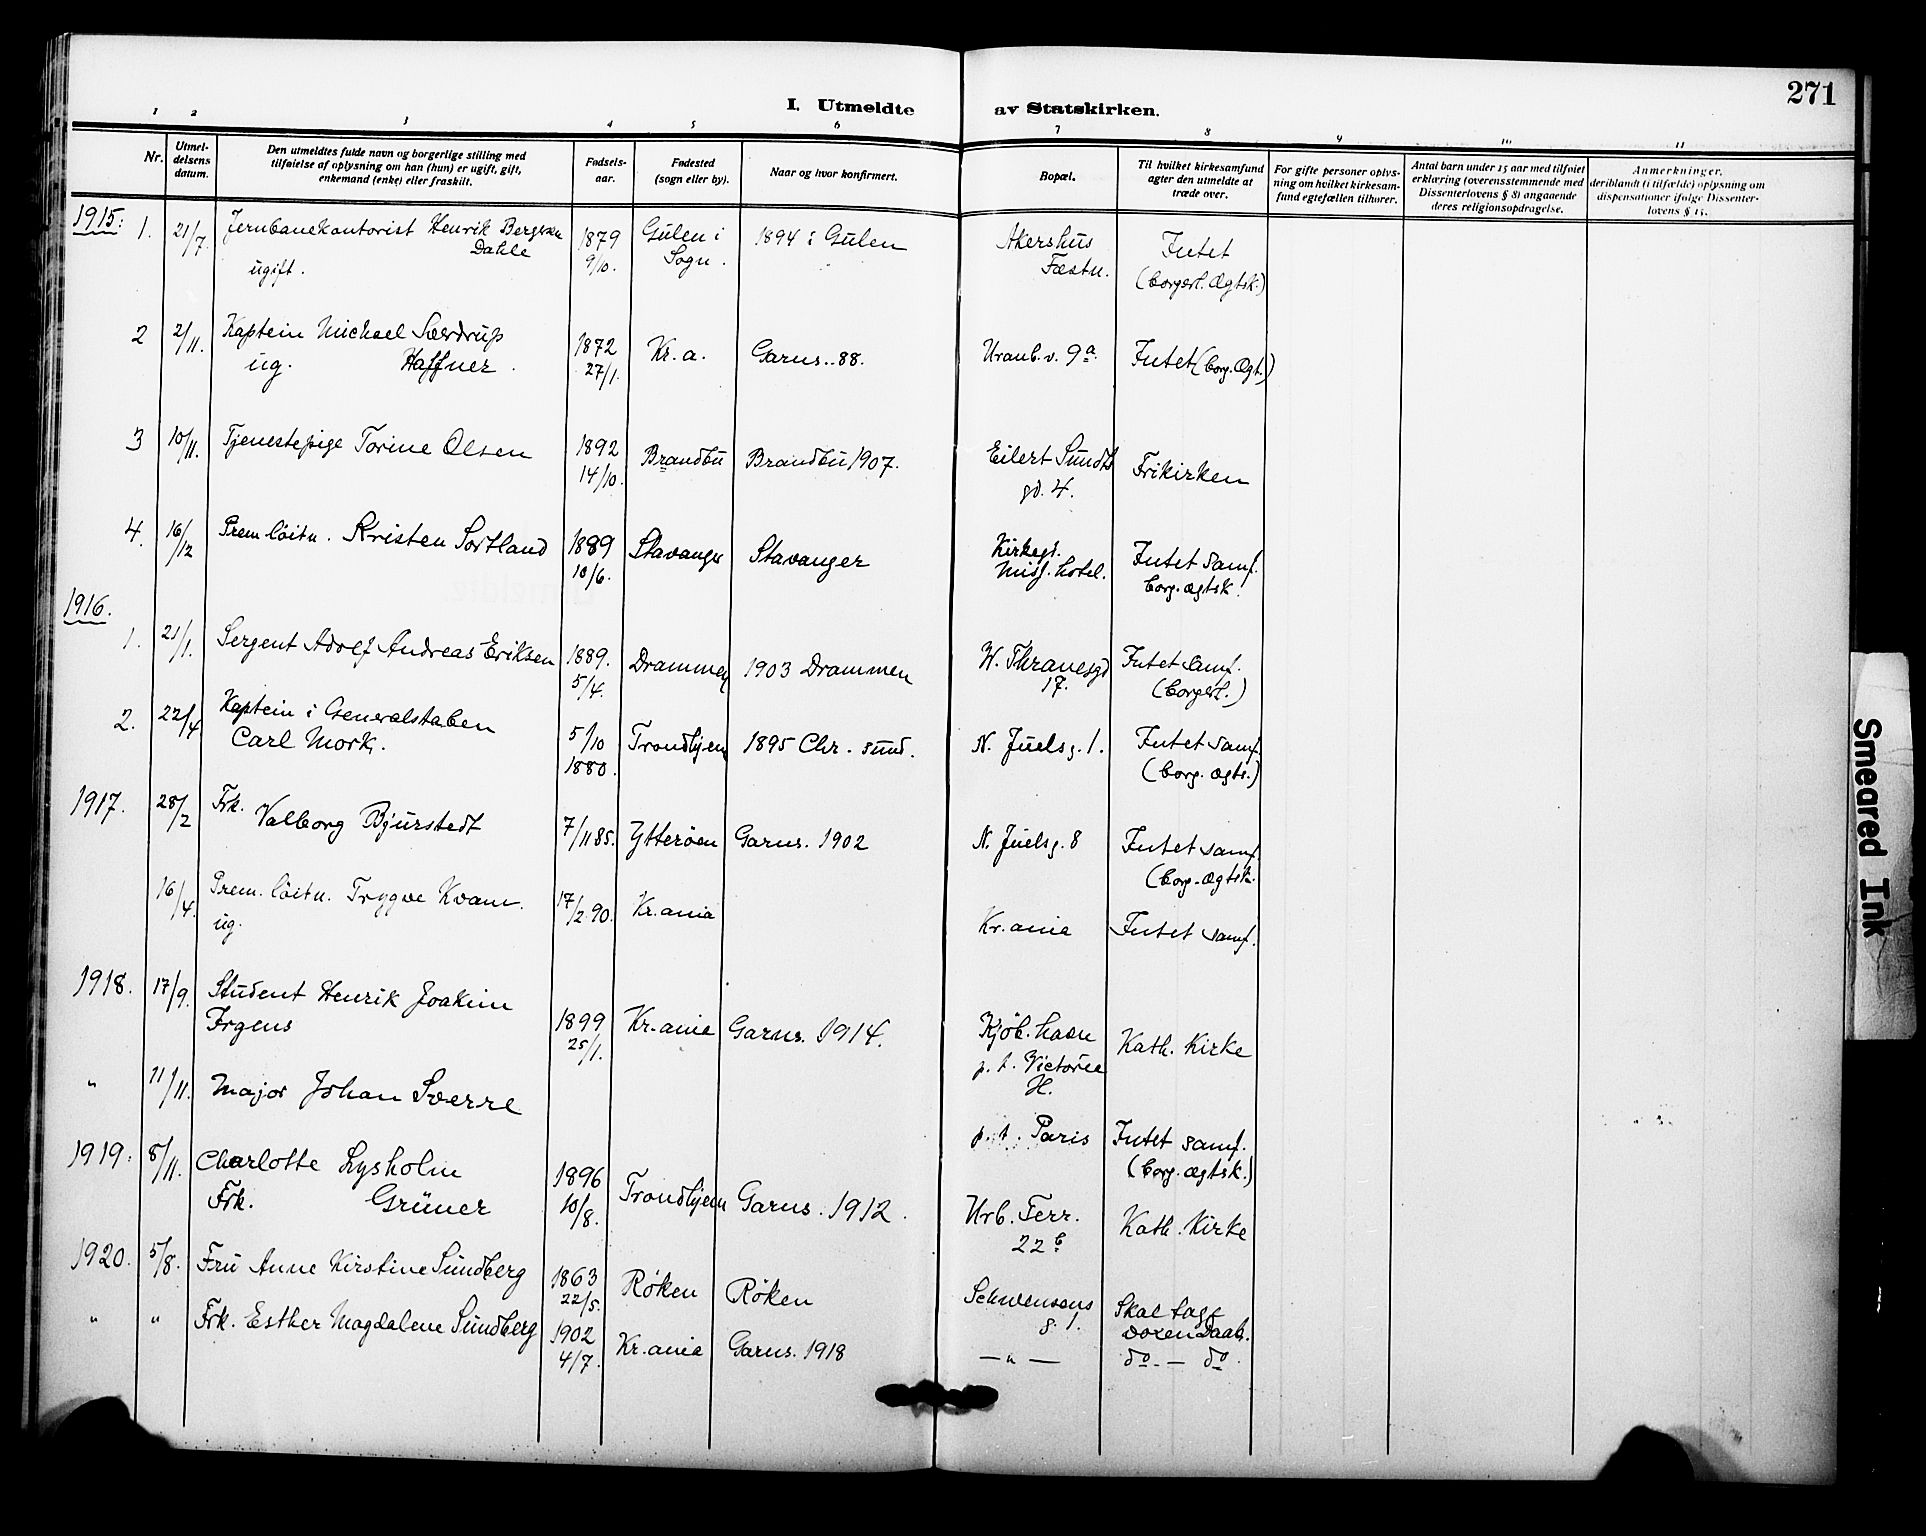 271
I. Utmeldte av Statskirken.
1 2 3 4 5 6 7 8 9 10 11
Nr.
Utmel-
delsens
datum.
Den utmeldtes fulde navn og borgerlige stilling med
tilføielse af oplysning om han (hun) er ugift, gift,
enkemand (enke) eller fraskilt.
Fødsels-
aar.
Fødested
(sogn eller by).
Naar og hvor konfirmert.
Bopæl.
Til hvilket kirkesamfund
agter den utmeldte at
træde over.
For gifte personer oplys-
ning om hvilket kirkesam-
fund egtefællen tilhører.
Antal barn under 15 aar med tilføiet
erklæring (overensstemmende med
Dissenterlovens § 8) angaaende
deres religionsopdragelse.
Anmerkninger,
deriblandt (i tilfælde) oplysning om
dispensationer ifølge Dissenter-
lovens § 15.
1915: 1. 21/7. Jernbanekontorist Henrik Bergesen 1879 Gulen i 1894 i Gulen Akershus Intet
Dahle 9/10. Sogn. Fæstn. (borgerl. ægtsk.)
ugift.
2 2/11. Kaptein Michael Særdrup 1872 Kr.a. Garns. -88. Uranb.v. 9a. Intet (borg. Ægt.)
ug. Haffner. 27/1.
3 10/11. Tjenestepige Torine Olsen 1892 Brandbu Brandbu 1907. Eilert Sundts Frikirken
14/10. gd. 4.
4. 16/12 Prem.löitn. Kristen Sortland 1889 Stavanger Stavanger Kirkegt. Intet Samf.
10/6. Miss. hotel. borg. ægtsk.
1916.
1. 21/1. Sergent Adolf Andreas Eriksen 1889. Drammen 1903 Drammen W. Thranesgd Intet Samf.
5/4. 17. (borgerl.)
2. 22/4 Kaptein i Generalstaben 5/10 Trondhjem 1895 Chr.sund. N. Juelsg. 1. Intet Samf.
Carl Mork. 1880. (borg. ægts.)
1917. 28/2 Frk. Valborg Bjurstedt 7/11 85. Ytterøen Garns. 1902 N. Juelsg. 8 Intet samf.
(borg. ægtsk.
16/4. Prem. löitn. Trygve Kvam. 17/2 90. Kr.ania Kr.ania Intet samf.
ug.
1918. 17/9. Student Henrik Joakim 1899 Kr.ania Garns. 1914. Kjöb.havn Kath. Kirke
Irgens 25/1. p.t. Victoria
H.
" 11/11. Major Johan Sverre p.t. Paris Intet samf.
(borg. ægtsk.)
1919: 8/11. Charlotte Lysholm 1896 Trondhjem Garns. 1912. Urb. Terr. Kath. Kirke
Frk. Grüner 10/8. 22b
1920. 5/8. Fru Anne Kirstine Sundberg 1863 Røken Røken Schwensens Skal tage
22/5. g. 1. voxen Daab.
" " Frk. Esther Magdalene Sundberg 1902 Kr.ania Garns. 1918 — " — do. — do.
4/7.
Smeared Ink